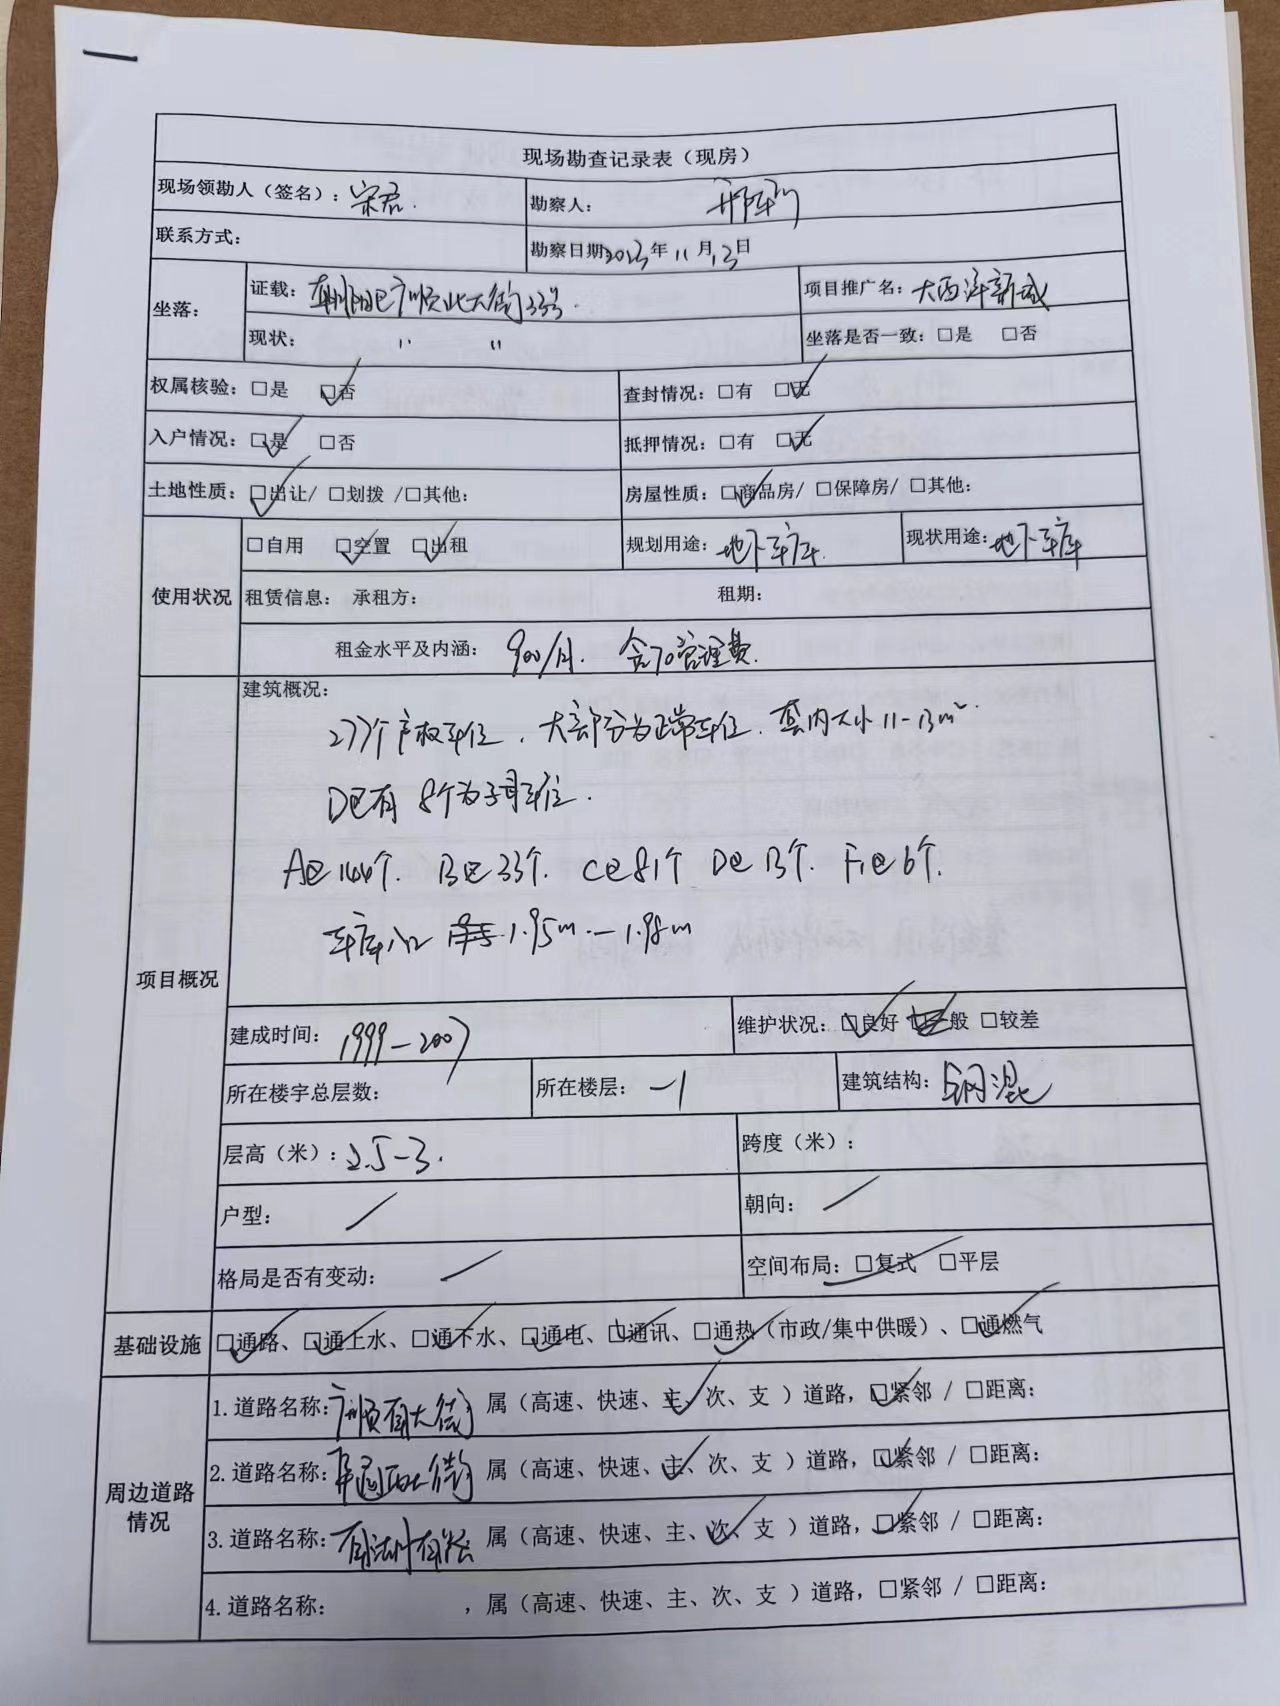 现场勘查记录表（现房）
现场领勘人（签名）：宋君.
勘察人：
联系方式：
勘察日期2023年11月13日
坐落：
证载：朝阳区广顺北大街33号.
项目推广名：大西洋新城
现状： 〃 〃
坐落是否一致：□是 □否
权属核验：□是 ☑否
查封情况：□有 ☑无
入户情况：☑是 □否
抵押情况：□有 ☑无
土地性质：☑出让/ □划拨 /□其他：
房屋性质：☑商品房/ □保障房/ □其他：
使用状况
□自用 ☑空置 ☑出租
规划用途：地下车库.
现状用途：地下车库
租赁信息： 承租方： 租期：
租金水平及内涵： 900/月. 含70管理费.
项目概况
建筑概况：
277个产权车位，大部分为正常车位.套内大小11-13m².
D区有8个为子母车位.
A区144个. B区33个. C区81个 D区13个. F1区6个.
车库入口 1.95m-1.98m
建成时间：1999-2007
维护状况：☑良好 □一般 □较差
所在楼宇总层数：
所在楼层：-1
建筑结构：钢混
层高（米）：2.5-3.
跨度（米）：
户型： /
朝向： /
格局是否有变动： /
空间布局：☑复式 □平层
基础设施
☑通路、☑通上水、☑通下水、☑通电、☑通讯、☑通热（市政/集中供暖）、☑通燃气
周边道路情况
1.道路名称：广顺南大街 属（高速、快速、主✓、次、支 ）道路，☑紧邻 / □距离：
2.道路名称：阜通西大街 属（高速、快速、主✓、次、支 ）道路，☑紧邻 / □距离：
3.道路名称：南湖南路 属（高速、快速、主、次✓、支 ）道路，☑紧邻 / □距离：
4.道路名称： ，属（高速、快速、主、次、支 ）道路，□紧邻 / □距离：